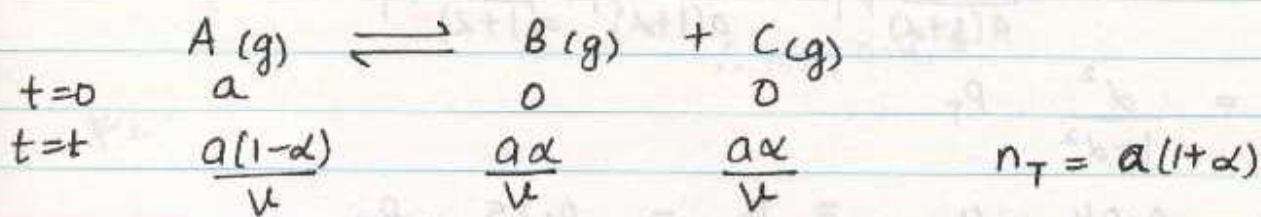 A (g) ⇌ B (g) + C (g)
t=0 a 0 0
t=t a(1-α)/V aα/V aα/V n_T = a(1+α)